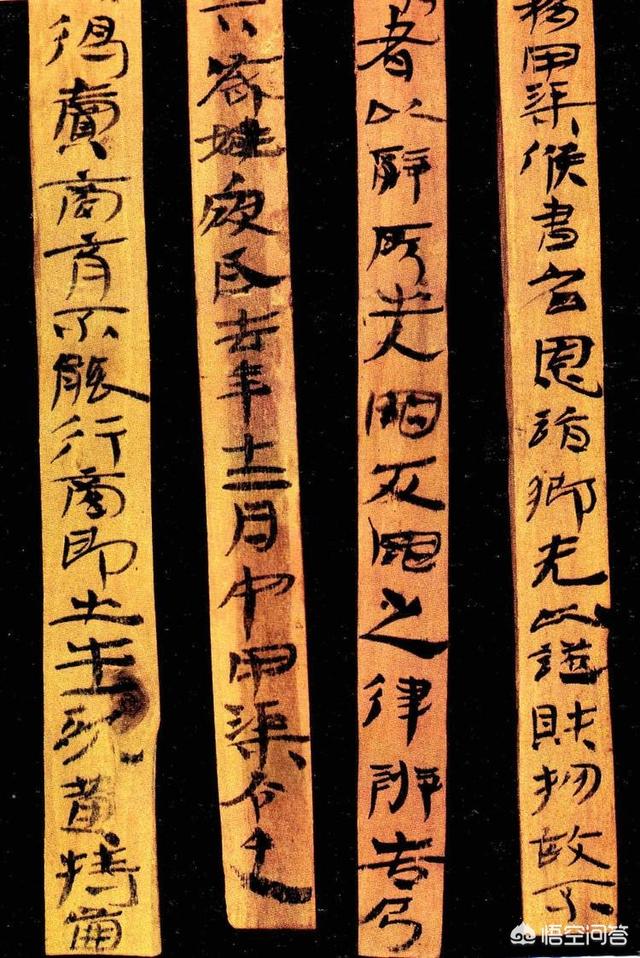 移甲渠候書召恩詣鄉先以證財物故不
者以辭所出入罪反罪之律辨告乃
六歲姓寇氏去年十二月中甲渠令史
得賣商育不能行商即出牛一頭黃特齒
悟空问答